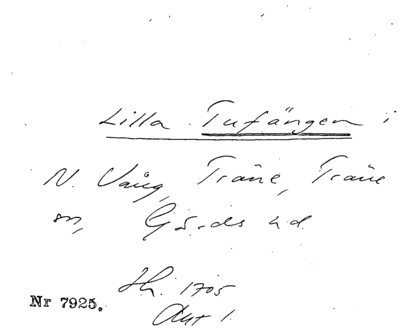 Lilla Tufängen i
N. Vång, Träne, Träne
sn, Gärds hd.
Jh. 1705
Akt 1.
Nr 7925.